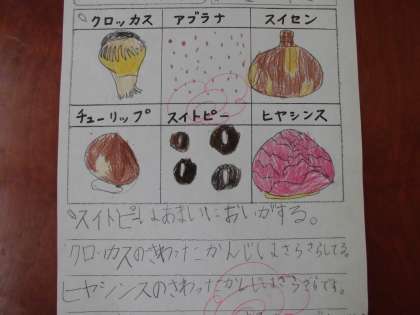 クロッカス アブラナ スイセン
チューリップ スイトピー ヒヤシンス
スイトピーはあまいにおいがする。
クロッカスのさわったかんじはさらさらしてる。
ヒヤシンスのさわったかんじはざらざらです。